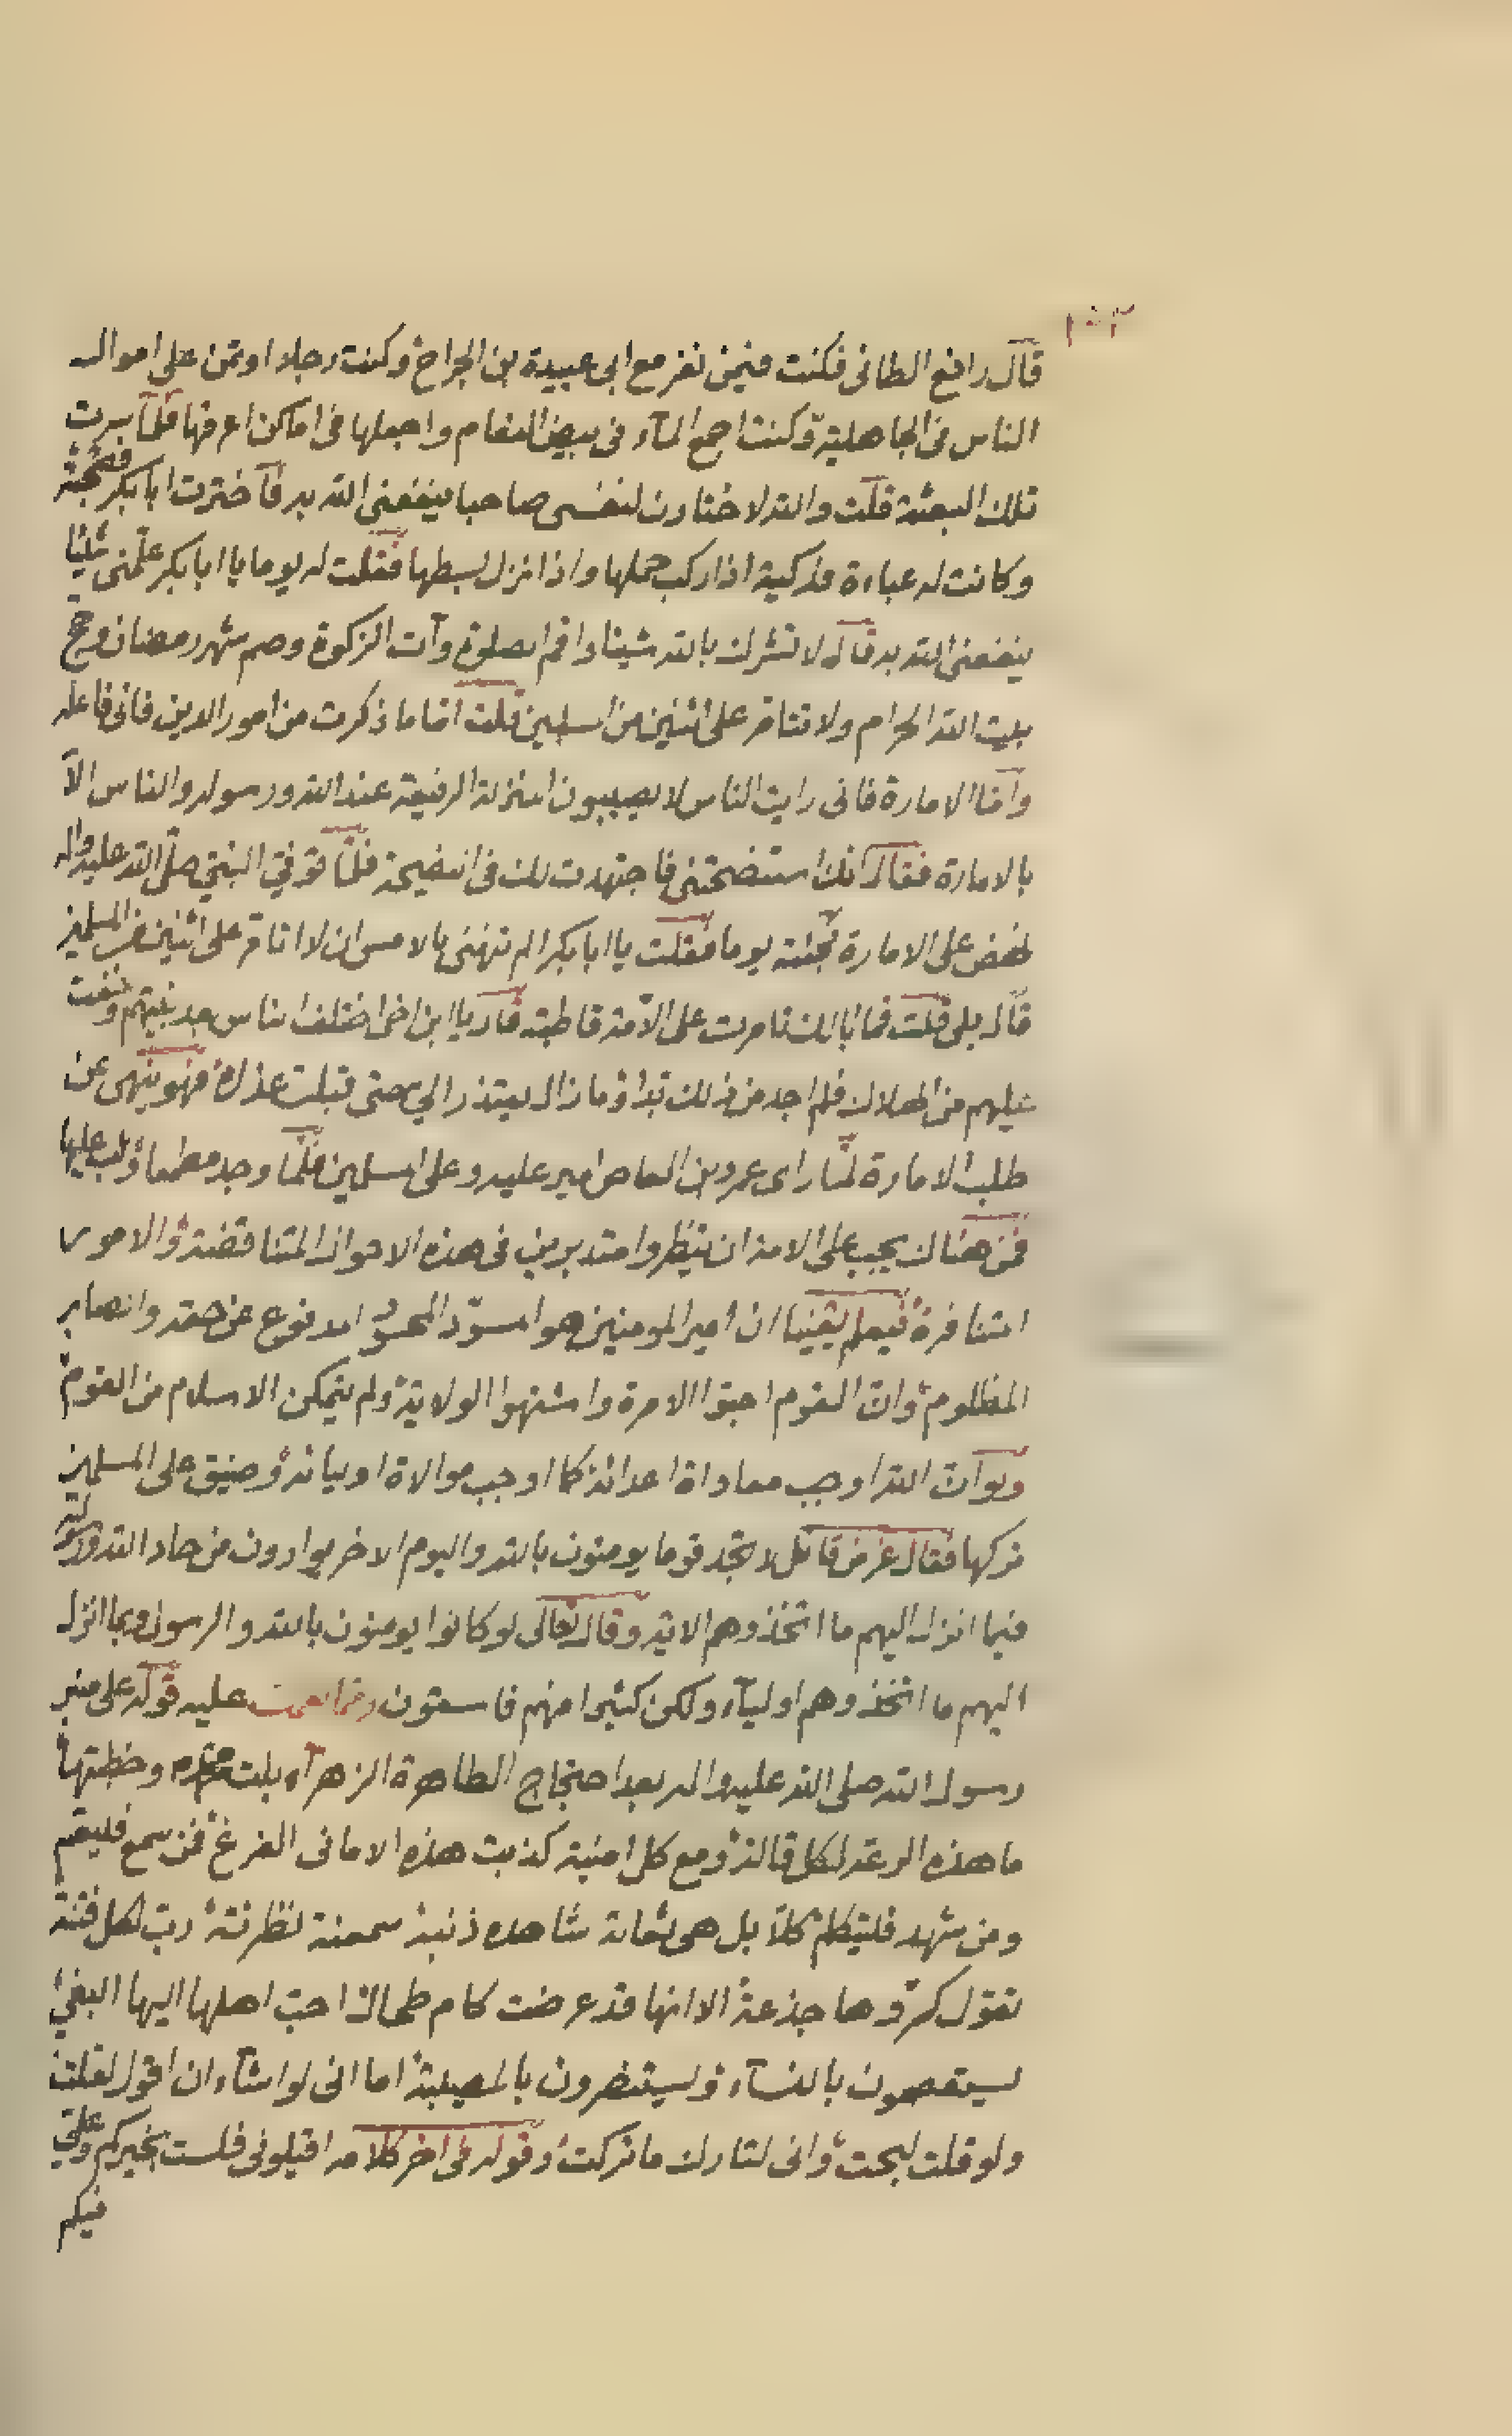 قال رافع الطائى فكنت فيمن نفر مع ابى عبيدة بن الجراح وكنت رجلا اوتمن على اموال
الناس فى الجاهلية وكنت اجمع المآء فى بيض النعام واجعلها فى اماكن اعرفها فلما سرت
تلك البعثة قلت والله لاختارن لنفسى صاحبا ينفعنى الله به فآخترت ابا بكر فصحبته
وكانت له عباءة فدكية اذا ركب حملها واذا نزل بسطها فقلت له يوما يا ابا بكر علمنى شيئا
ينفعنى الله به قال لا تشرك بالله شيئا واقم الصلوة وآت الزكوة وصم شهر رمضان وحج
بيت الله الحرام ولا تتامر على اثنين من المسلمين قلت اما ما ذكرت من امور الدين فانى فاعله
وآما الامارة فانى رايت الناس لا يصيبون المنزلة الرفيعة عند الله ورسوله والناس الآ
بالامارة فقال انك استنصحتنى فاجتهدت لك فى النصيحة فلما توفي النبي صلى الله عليه واله
نهض على الامارة فجئته يوما فقلت يا ابا بكر الم تنهنى بالامس ان لا اتامر على اثنين من المسلمين
قال بلى قلت فما بالك تامرت على الامة قاطبة قال يا ابن اخى اختلف الناس بعد نبيهم وخفت
عليهم من الهلاك فلم اجد من ذلك بدا وما زال يعتذر الي حتى قبلت عذره فهو ينهى عن
طلب الامارة لما راى عمرو بن العاص امير عليه وعلى المسلمين فلما وجد مطمعا وثب عليها
فمن هناك يجب على الامة ان ينظروا متدبرين فى هذه الاحوال المتناقضة والامور
المتنافرة فيعلم يقينا ان امير المومنين هو المسود المحسود المدفوع عن حقه والصابر
المظلوم وان القوم احبوا الامرة واشتهوا الولاية ولم يتمكن الاسلام من القوم
ولو ان الله اوجب معاداة اعدائه كما اوجب موالاة اوليائه وضيق على المسلمين
تركها فقال عز من قائل لا تجد قوما يومنون بالله واليوم الاخر يوادون من حاد الله ورسوله
فيما انزل اليهم ما اتخذوهم الاية وقال تعالى لو كانوا يومنون بالله والرسول وبما انزل
اليهم ما اتخذوهم اوليآء ولكن كثيرا منهم فاسقون عليه قوله على منبر
رسول الله صلى الله عليه واله بعد احتجاج الطاهرة الزهرآء بنت محمد وخطبتها
ما هذه الرعة لكل قالة ومع كل امنية كذبت هذه الامانى الفرغ فمن سمع فليقم
ومن شهد فليتكلم كلا بل هى ثعالة شاهده ذنبه رب لكل فتنة
تقول كروها جذعة الا انها قد عرضت كام طحال احب اهلها اليها البغي
يستعصون بالنسآء ويستنصرون بالمصيبة اما انى لو اشآء ان اقول لقلت
ولو قلت لبحت وانى لتارك ما تركت وقوله فى اخر كلامه اقيلونى فلست بخيركم وعلي
فيكم